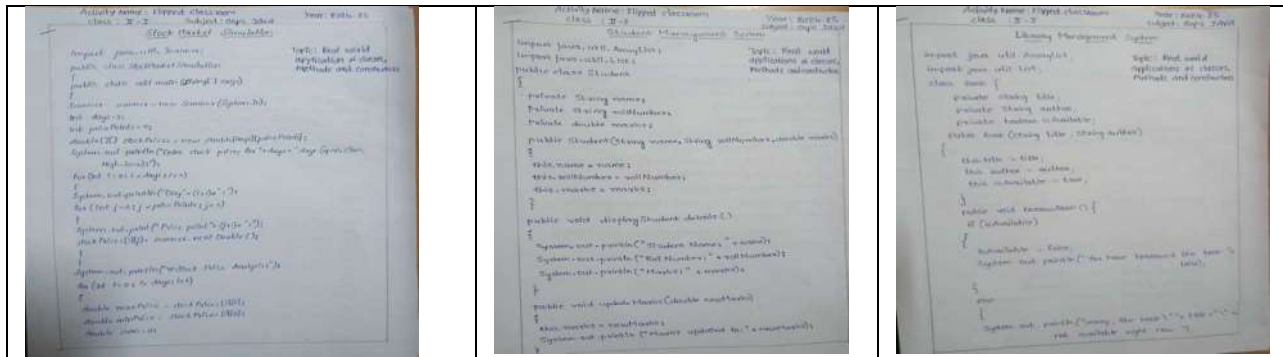 Activity Name: Flipped classroom
class : II - I Subject: oops Java
Year: 2024-25
Stock Market Simulation
import java.util.Scanner;
Topic: Real world
applications of classes,
Methods and constructors
public class StockMarketSimulation
{
public static void main(String[] args)
{
Scanner scanner = new Scanner(System.in);
int days =
int pricePoints =
double[][] stockPrices = new double[days][pricePoints];
System.out.println("Enter stock prices for "+days+" days
for(int i=0; i<days; i++)
{
System.out.println("Day"+(i+1)+":");
for (int j=0; j<pricePoints; j++)
{
System.out.print("Price point"+(j+1)+":");
stockPrices[i][j]= scanner.nextDouble();
}
}
System.out.println("Stock Price Analysis");
for (int i=0; i<days; i++)
{
double maxPrice = stockPrices[i][0];
double minPrice = stockPrices[i][0];
double sum=0;
Activity Name: Flipped classroom
class : II - I
Year: 2024-25
Subject: oops Java
Student Management System
import java.util.ArrayList;
import java.util.List;
Topic: Real world
applications of classes,
Methods and constructors
public class Student
{
private String name;
private String rollNumber;
private double marks;
public Student(String name, String rollNumber, double marks)
{
this.name = name;
this.rollNumber = rollNumber;
this.marks = marks;
}
public void displayStudent details()
{
System.out.println("Student Name: "+name);
System.out.println("Roll Number: "+rollNumber);
System.out.println("Marks: "+marks);
}
public void updateMarks(double newMarks)
{
this.marks = newMarks;
System.out.println("Marks updated to: "+newMarks);
}
Activity Name: Flipped classroom
class : II - I
Year: 2024-25
Subject: oops JAVA
Library Management System
import java.util.ArrayList;
import java.util.List;
Topic: Real world
applications of classes,
Methods and constructors
class Book {
private String title;
private String author;
private boolean isAvailable;
public Book (String title, String author)
{
this.title = title;
this.author = author;
this.isAvailable = true;
}
public void () {
if (isAvailable)
{
isAvailable = false;
System.out.println("You have the book "+
title);
}
else
{
System.out.println("Sorry, the book \""+ title +"\" is
not available right now.");